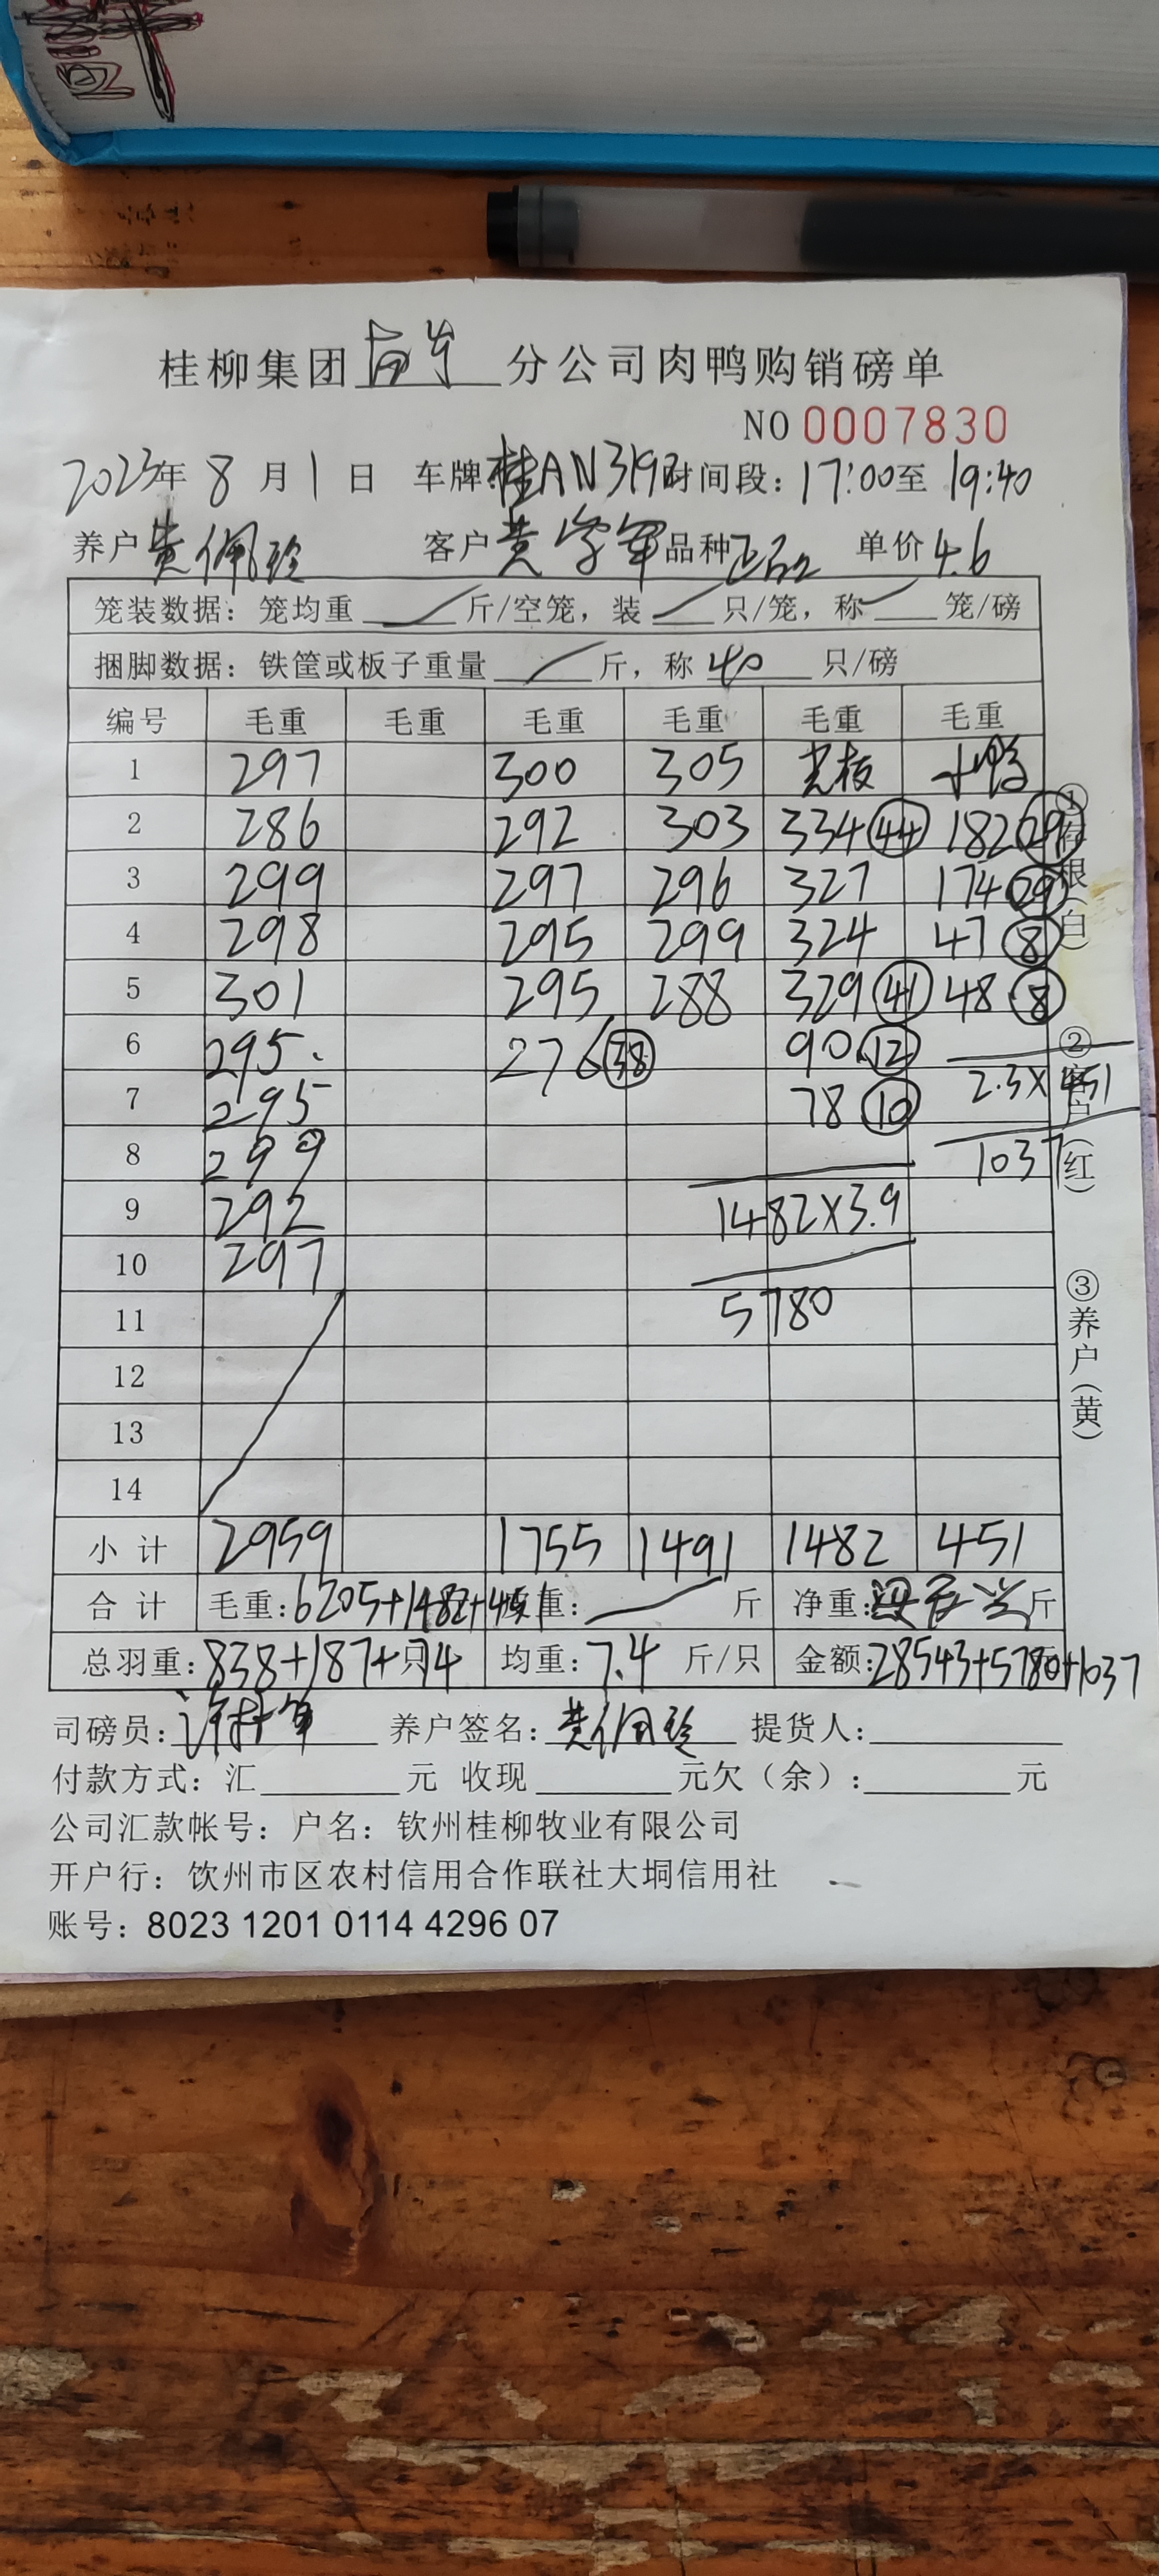 桂柳集团 分公司肉鸭购销磅单
NO 0007830
2023年 8 月 1 日 车牌 桂AN319 时间段：17:00至 19:40
养户 黄佩玲 客户 黄学军 品种 正品 单价 4.6
笼装数据：笼均重 斤/空笼，装 只/笼，称 笼/磅
捆脚数据：铁筐或板子重量 斤，称 40 只/磅
编号 毛重 毛重 毛重 毛重 毛重 毛重
1 297 300 305 光板 小鸭
2 286 292 303 334 44 182 29
3 299 297 296 327 174 29
4 298 295 299 324 47 8
5 301 295 288 329 41 48 8
6 295. 276 38 90 12
7 295 78 10 2.3×451
8 299 1037
9 292 1482×3.9
10 297
11 5780
12
13
14
小计 2959 1755 1491 1482 451
合计 毛重：6205+1482+451 重： 斤 净重： 斤
总羽重：838+187+只74 均重：7.4 斤/只 金额：28543+5780+1037
司磅员： 养户签名：黄佩玲 提货人：
付款方式：汇 元 收现 元欠（余）： 元
公司汇款帐号：户名：钦州桂柳牧业有限公司
开户行：饮州市区农村信用合作联社大垌信用社
账号：8023 1201 0114 4296 07
①存根（白）
②客户（红）
③养户（黄）